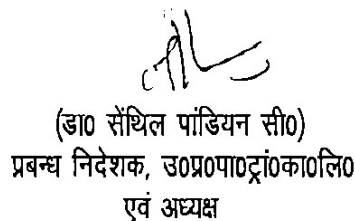 (डा0 सेंथिल पांडियन सी0)
प्रबन्ध निदेशक, उ0प्र0पा0ट्रां0का0लि0
एवं अध्यक्ष